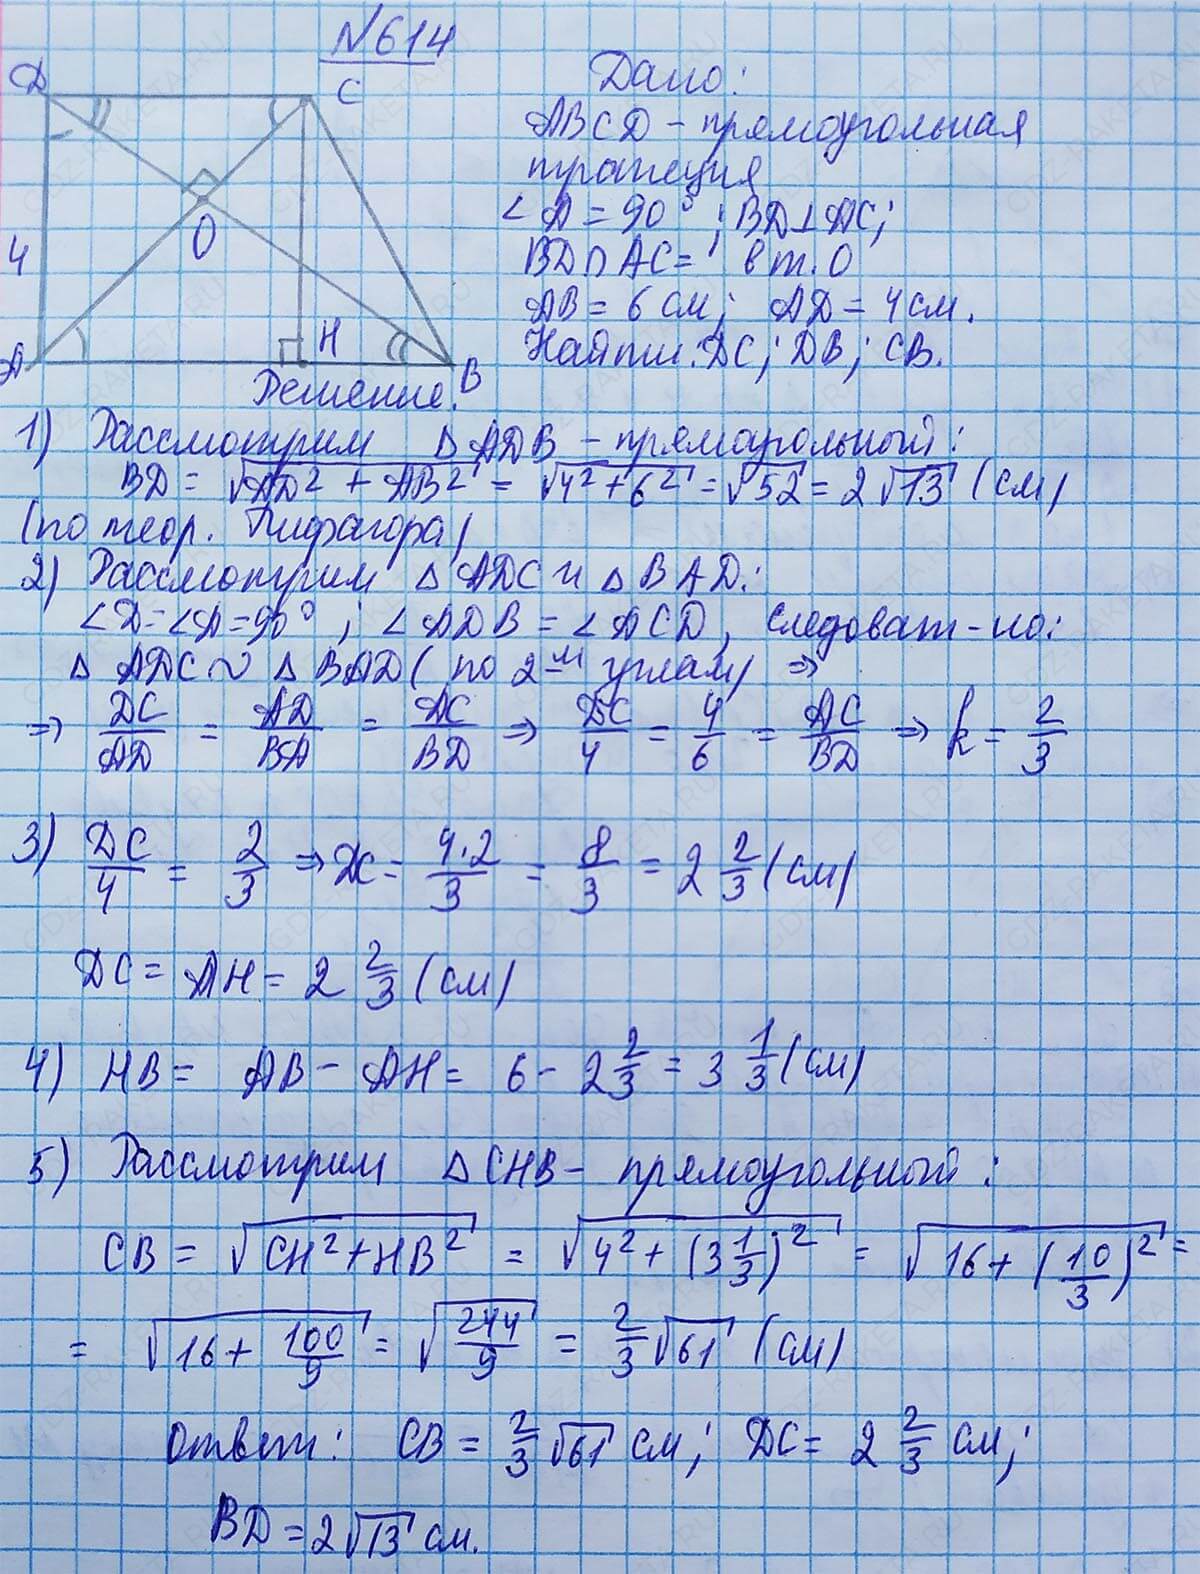 №614
D
C
O
4
H
A
B
Дано:
ABCD - прямоугольная
трапеция
∠A = 90°; BD⊥AC;
BD∩AC = в т. O
AB = 6 см; AD = 4 см.
Найти: DC; DB; CB.
Решение.
1) Рассмотрим △ADB - прямоугольный:
BD = √(AD² + AB²) = √(4² + 6²) = √52 = 2√13 (см)
(по теор. Пифагора)
2) Рассмотрим △ADC и △BAD:
∠D = ∠A = 90°; ∠ADB = ∠ACD, следоват-но:
△ADC ~ △BAD (по 2-м углам) ⇒
⇒ DC/AD = AD/BA = AC/BD ⇒ DC/4 = 4/6 = AC/BD ⇒ k = 2/3
3) DC/4 = 2/3 ⇒ DC = 4·2/3 = 8/3 = 2 2/3 (см)
DC = AH = 2 2/3 (см)
4) HB = AB - AH = 6 - 2 2/3 = 3 1/3 (см)
5) Рассмотрим △CHB - прямоугольный:
CB = √(CH² + HB²) = √(4² + (3 1/3)²) = √(16 + (10/3)²) =
= √(16 + 100/9) = √(244/9) = 2/3 √61 (см)
Ответ: CB = 2/3 √61 см; DC = 2 2/3 см;
BD = 2√13 см.